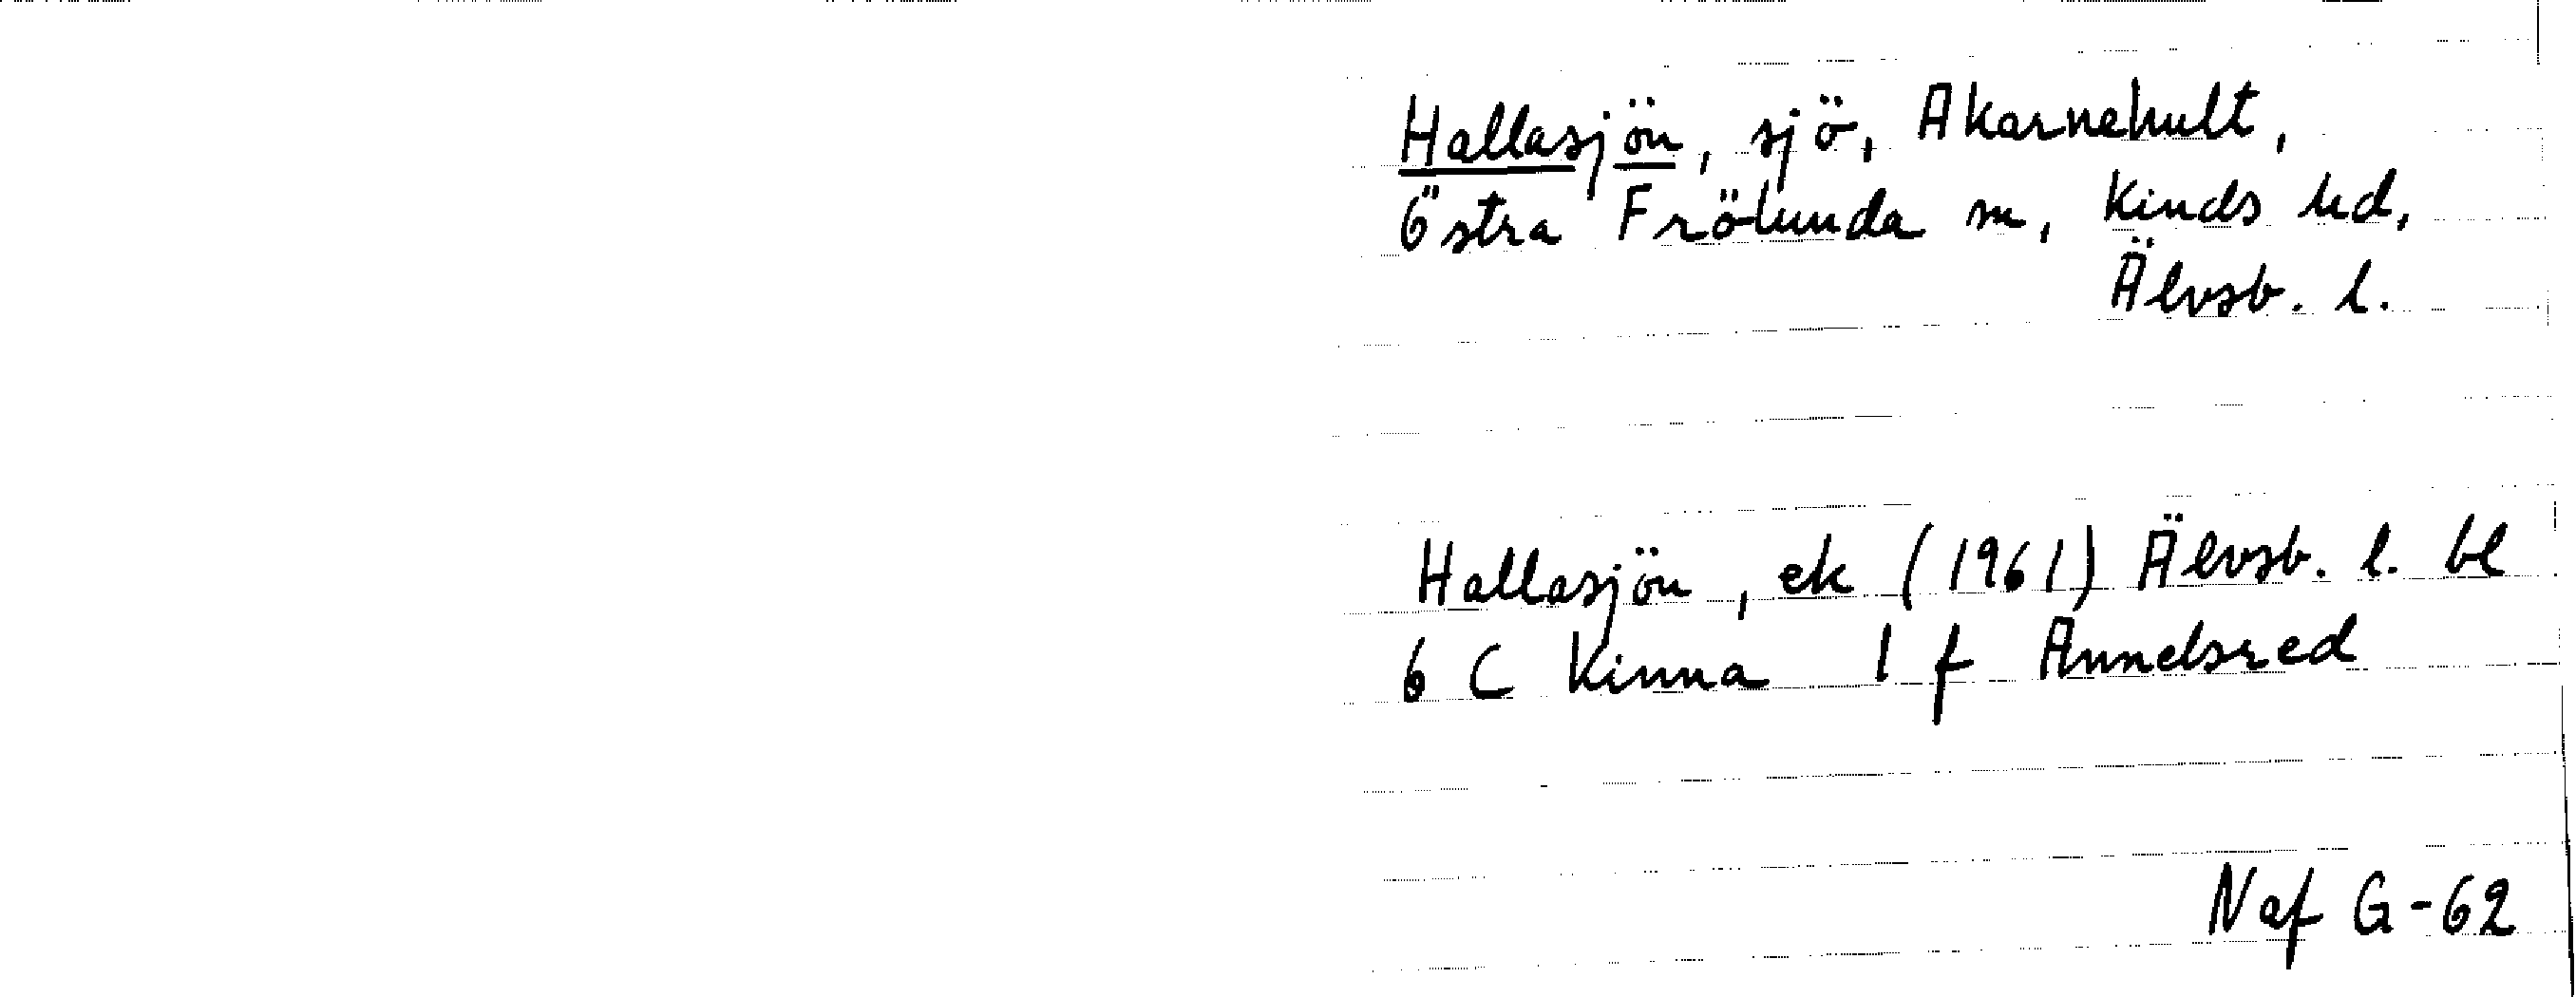 Hallasjön, sjö, Akarnehult,
Östra Frölunda sn, Kinds hd,
Älvsb. l.
Hallasjön, ek (1961) Älvsb. l. bl
6 C Kinna 1 f Annelsred
Naf G-62